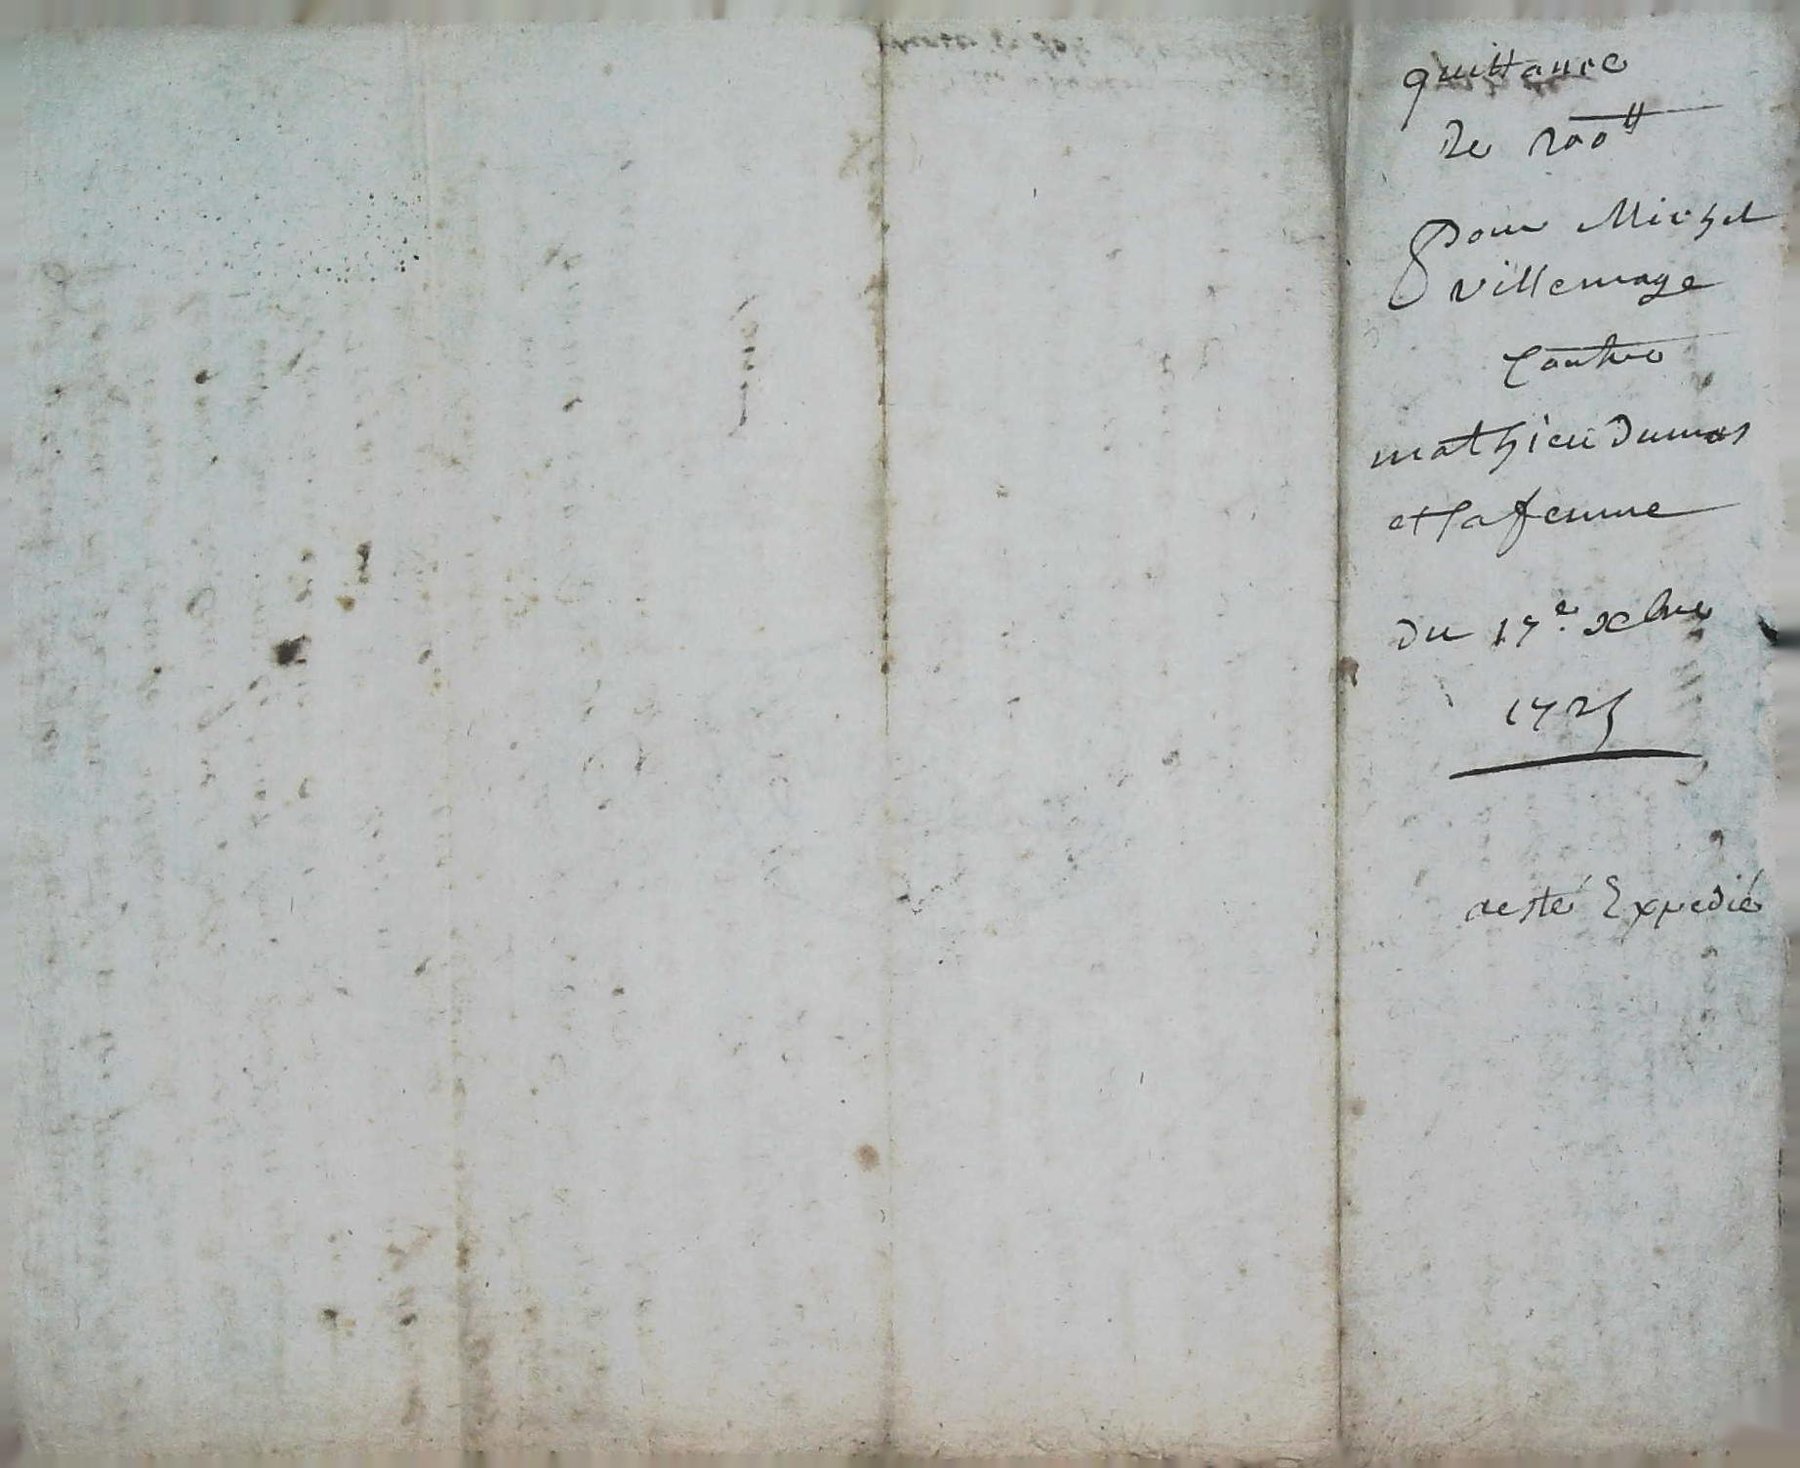 quittance
de 200ᵗᵗ
pour Michel
villemage
Contre
mathieu Dumas
et sa femme
du 17ᵉ xbre
1725
a esté Expedié